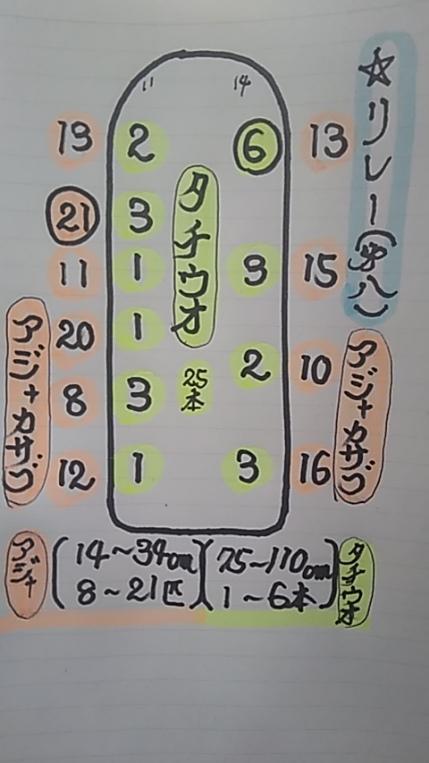 ☆リレー(沖八)
11 14
13 2 6 13
21 3
11 1 3 15
20 1
2 10
8 3
12 1 3 16
タチウオ
25本
アジ+カサゴ
アジ+カサゴ
アジ (14~34cm)(75~110cm) タチウオ
8~21匹 1~6本